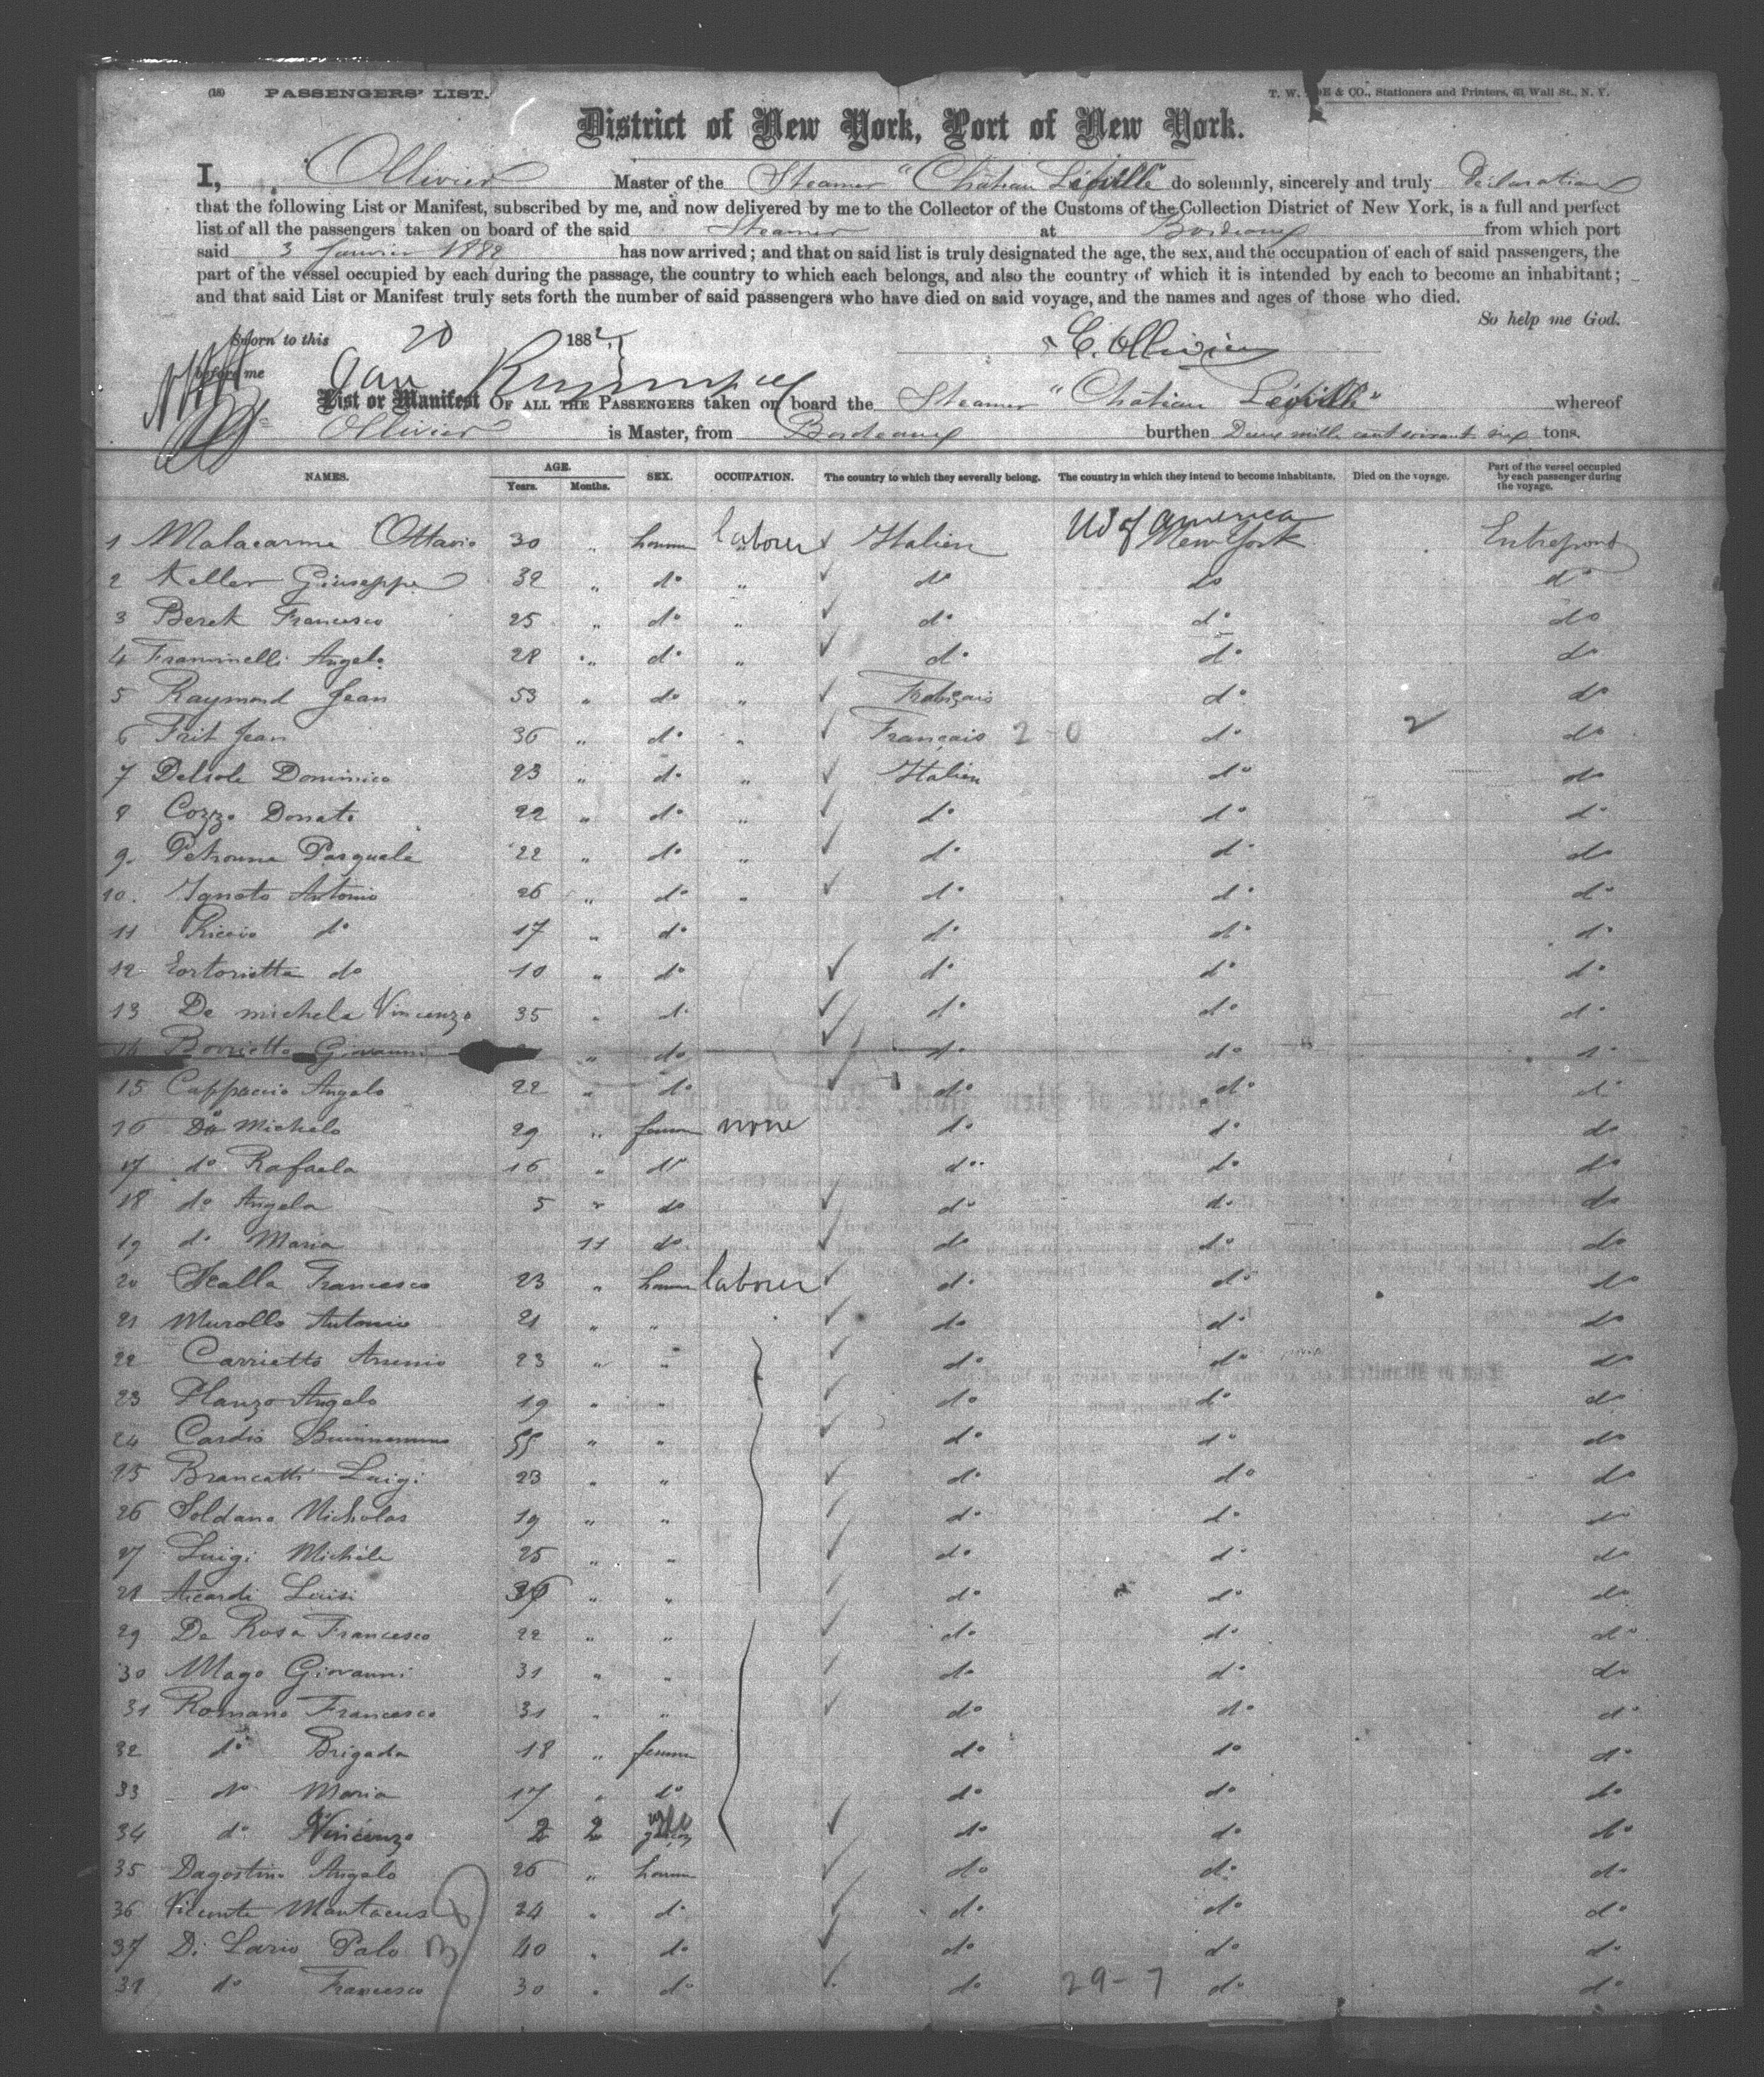 (18) PASSENGERS' LIST. T. W. & CO., Stationers and Printers, 63 Wall St., N. Y.
District of New York, Port of New York.
I, Ollivier Master of the Steamer "Château Léoville" do solemnly, sincerely and truly Déclaration
that the following List or Manifest, subscribed by me, and now delivered by me to the Collector of the Customs of the Collection District of New York, is a full and perfect
list of all the passengers taken on board of the said Steamer at Bordeaux from which port
said 3 Janvier 1882 has now arrived; and that on said list is truly designated the age, the sex, and the occupation of each of said passengers, the
part of the vessel occupied by each during the passage, the country to which each belongs, and also the country of which it is intended by each to become an inhabitant;
and that said List or Manifest truly sets forth the number of said passengers who have died on said voyage, and the names and ages of those who died.
So help me God.
Sworn to this 20 1882 E. Ollivier
before me Jan
List or Manifest OF ALL THE PASSENGERS taken on board the Steamer "Château Léoville" whereof
Ollivier is Master, from Bordeaux burthen Deux mille cent soixant six tons.
NAMES. AGE. Years. Months. SEX. OCCUPATION. The country to which they severally belong. The country in which they intend to become inhabitants. Died on the voyage. Part of the vessel occupied by each passenger during the voyage.
1 Malacarma Ottavio 30 " homme labourer Italien US of America New York Entrepont
2 Keller Giuseppe 32 " do " do do do
3 Berek Francesco 25 " do " do do do
4 Franminelli Angelo 28 " do " do do do
5 Raymond Jean 53 " do " Français do do
6 Frit Jean 36 " do " Français 2-0 do do
7 Delsole Dominico 23 " do " Italien do do
8 Cozzo Donato 22 " do " do do do
9 Petronna Pasquale 22 " do " do do do
10. Ignoto Antonio 26 " do " do do do
11 Riccio do 17 " do do do do
12 Tortorietta do 10 " do do do do
13 De michele Vincenzo 35 " do do do do
14 Borrietto Giovanni " do do do do
15 Cappaccio Angelo 22 " do do do do
16 Do Michele 29 " femme none do do do
17 do Rafaela 16 " do do do do
18 do Angela 5 " do do do do
19 do Maria 11 do do do do
20 Scalla Francesco 23 " homme labourer do do do
21 Murollo Antonio 21 " " do do do
22 Carrietto Arsenio 23 " " do do do
23 Planzo Angelo 19 " " do do do
24 Cardio 55 " " do do do
25 Brancatti Luigi 23 " " do do do
26 Soldano Nicholas 19 " " do do do
27 Luigi Michele 25 " " do do do
28 Accardi Luisi " " do do do
29 De Rosa Francesco 22 " " do do do
30 Mago Giovanni 31 " " do do do
31 Romano Francesco 31 " " do do do
32 do Brigada 18 " femme do do do
33 do Maria 17 " do do do do
34 do Vincenzo 2 2 garçon do do do
35 Dagostino Angelo 26 " homme do do do
36 Vicente Mantacus 24 " do do do do
37 Di Lario Palo 40 " do do do do
38 do Francesco 30 " do do 29-7 do do